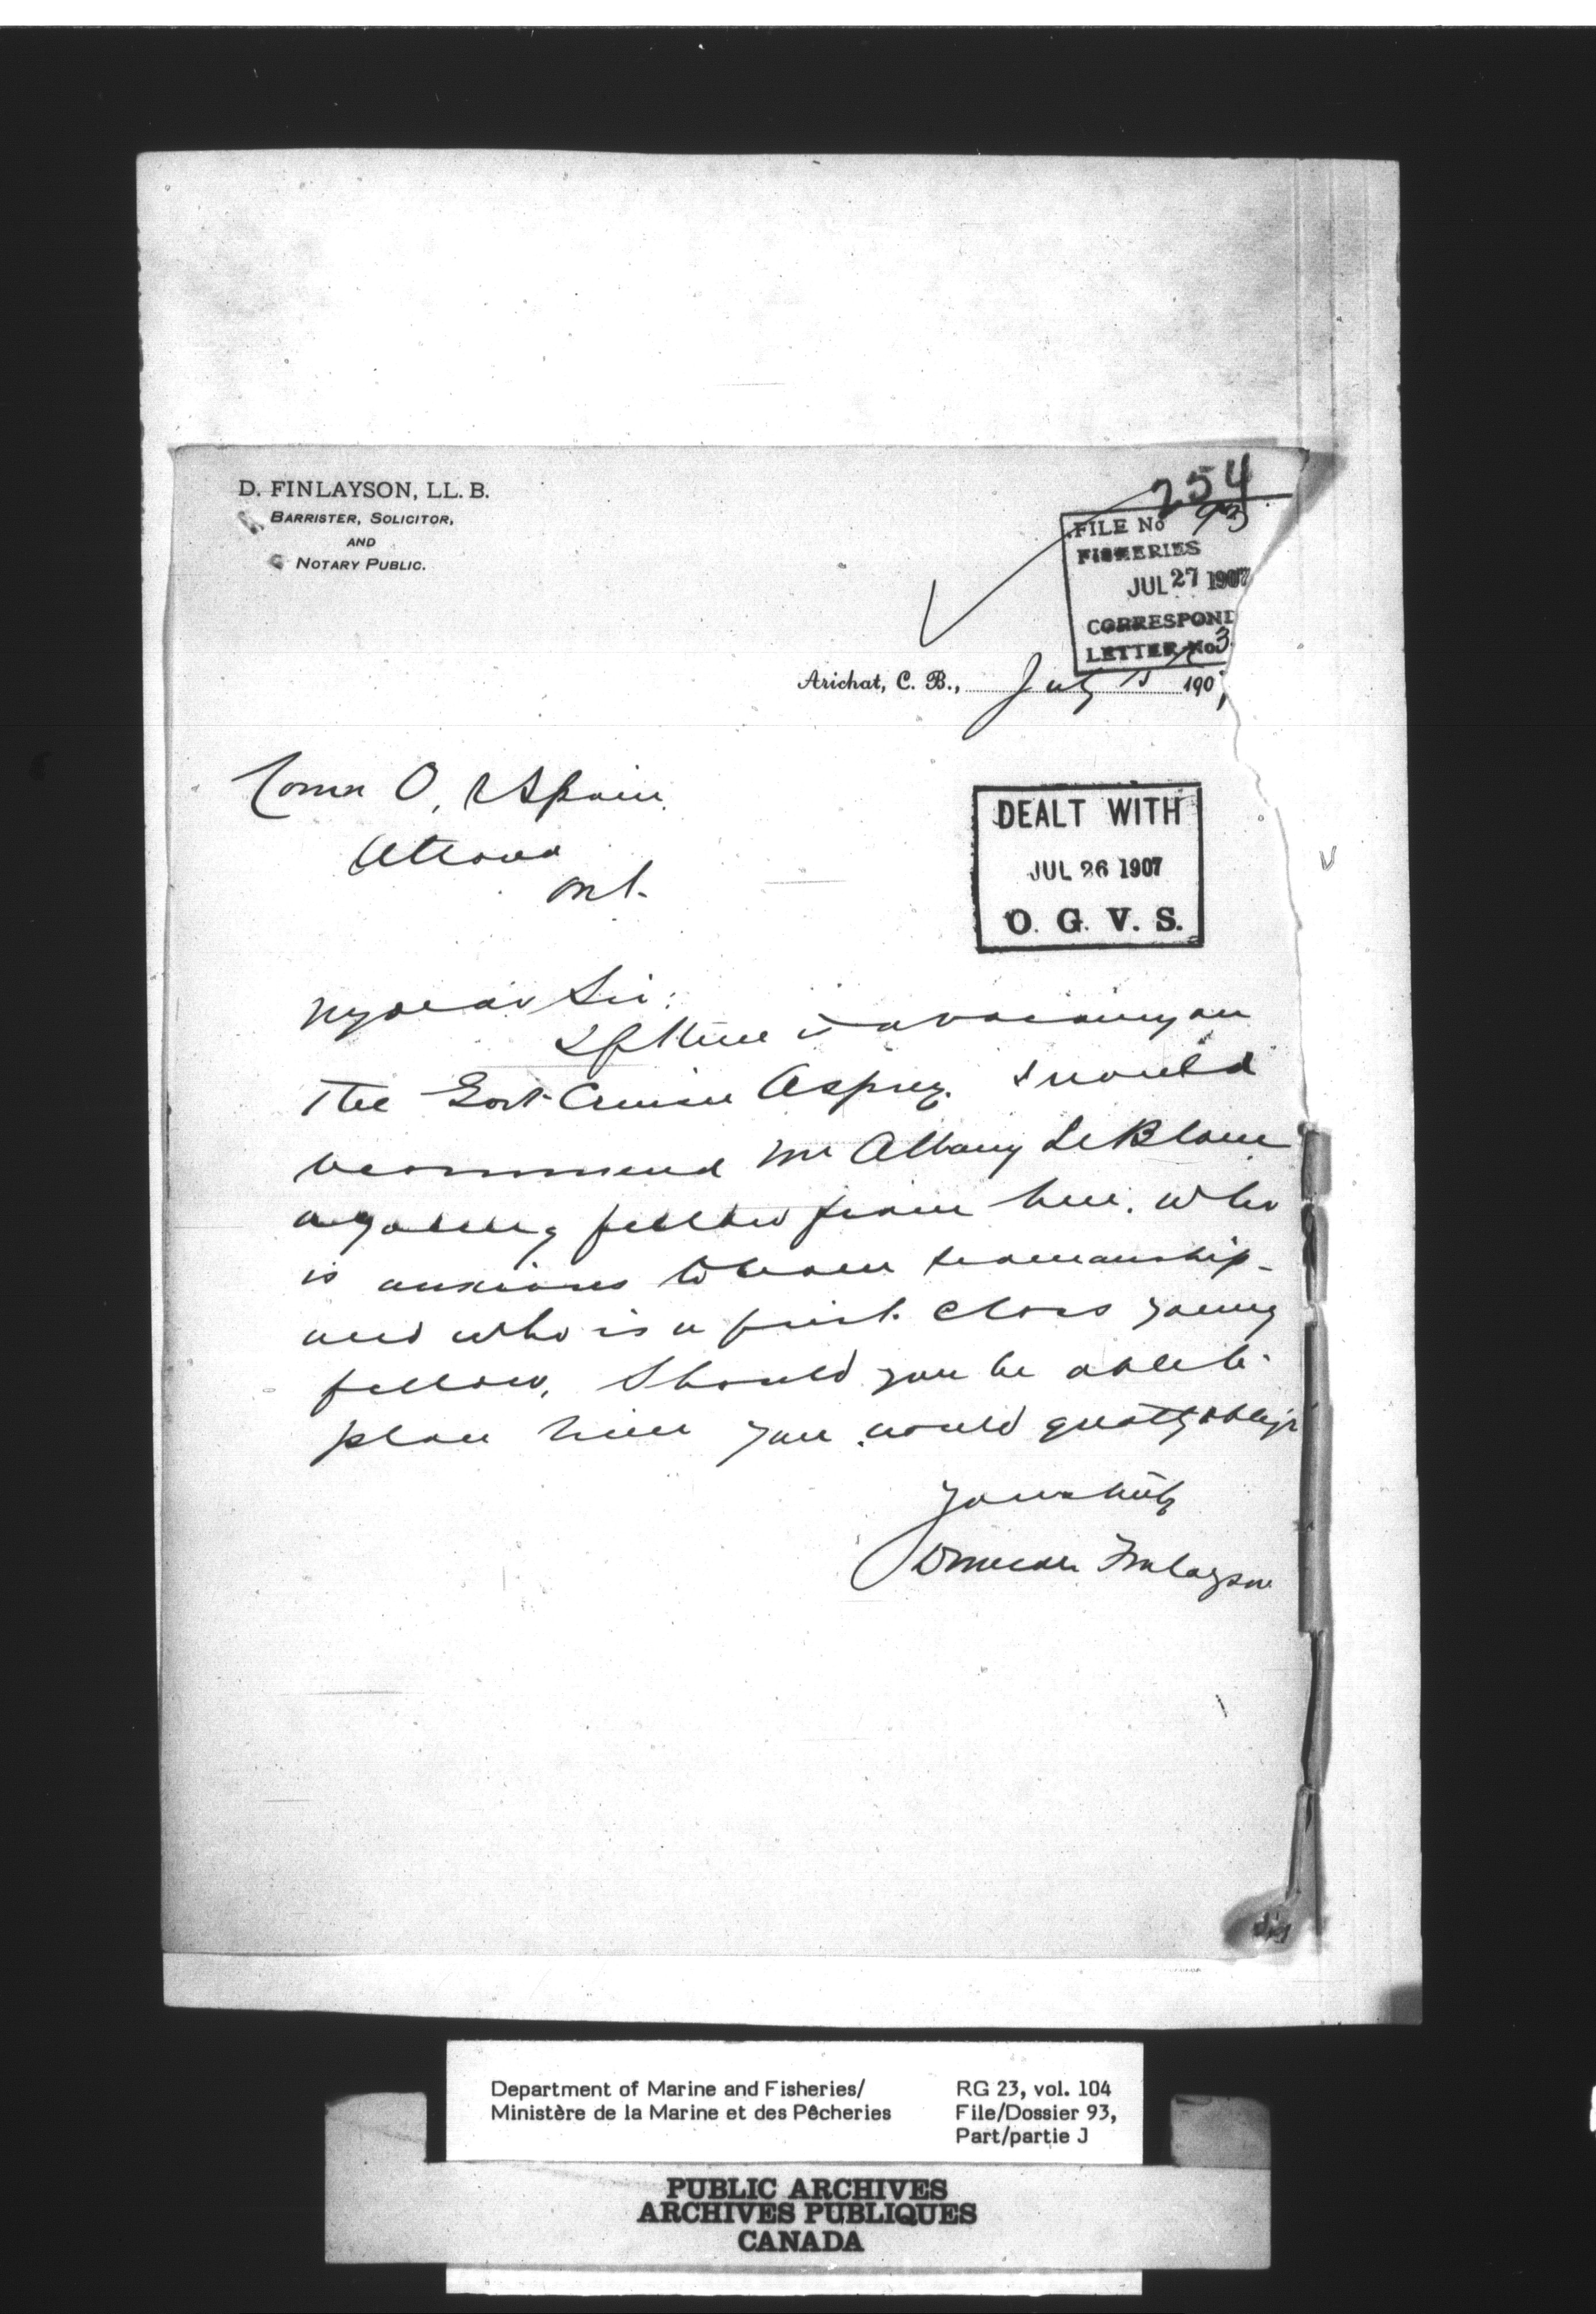 254
93
D. FINLAYSON, LL. B.
BARRISTER, SOLICITOR,
AND
NOTARY PUBLIC.
FILE No
FISHERIES
JUL 27 1907
CORRESPOND
LETTER No. 3
Arichat, C. B., July 15 1907
Com O. Spain
Ottawa
Ont.
DEALT WITH
JUL 26 1907
O. G. V. S.
My dear Sir:
If there is a vacancy on
the Govt Cruiser Osprey. I would
recommend Mr Albany LeBlanc
a young fellow from here. who
is anxious to learn seamanship -
and who is a first class young
fellow. Should you be able to
place him you would greatly oblige
Yours truly
Duncan Finlayson
Department of Marine and Fisheries/
Ministère de la Marine et des Pêcheries
RG 23, vol. 104
File/Dossier 93,
Part/partie J
PUBLIC ARCHIVES
ARCHIVES PUBLIQUES
CANADA